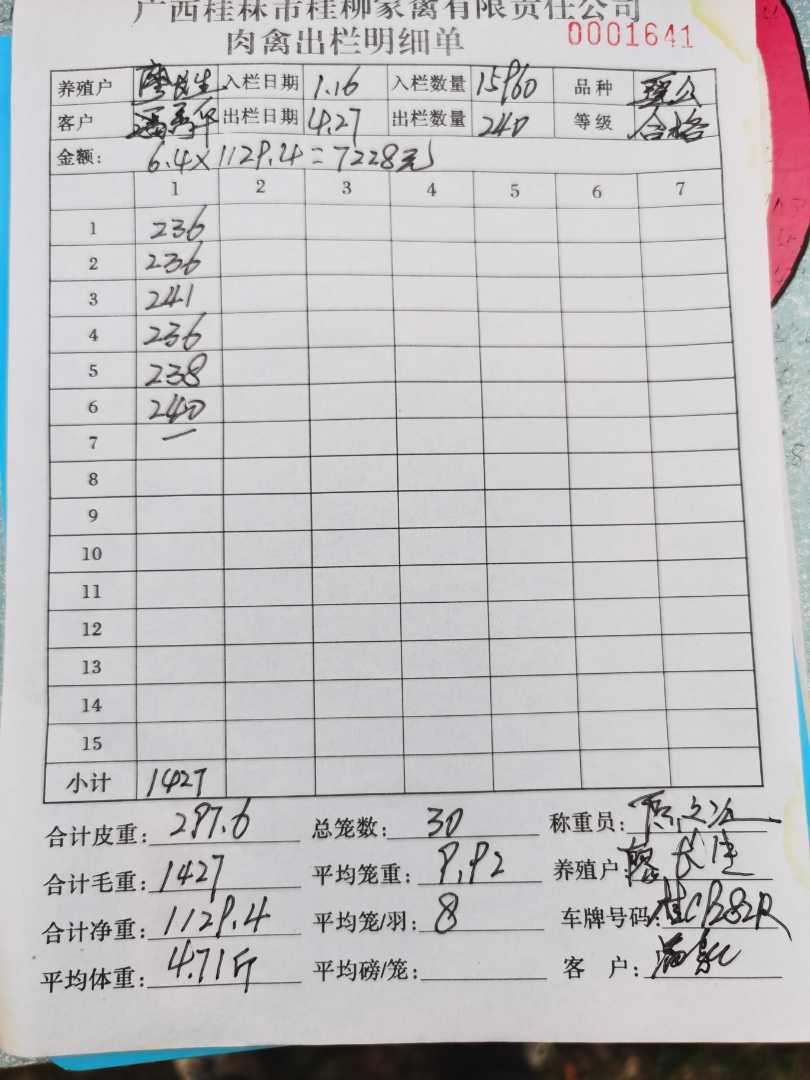 广西桂林市桂柳家禽有限责任公司
肉禽出栏明细单 0001641
养殖户 廖长生 入栏日期 1.16 入栏数量 15960 品种
客户 出栏日期 4.27 出栏数量 240 等级 合格
金额: 6.4×1129.4=7228元
1 2 3 4 5 6 7
1 236
2 236
3 241
4 236
5 238
6 240
7 —
8
9
10
11
12
13
14
15
小计 1427
合计皮重: 297.6 总笼数: 30 称重员:
合计毛重: 1427 平均笼重: 9.92 养殖户
合计净重: 1129.4 平均笼/羽: 8 车牌号码:
平均体重: 4.71斤 平均磅/笼: 客 户: